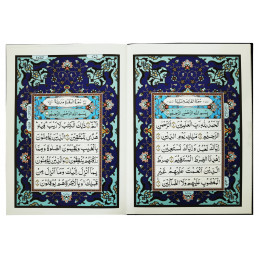 بِسْمِ اللَّهِ الرَّحْمَٰنِ الرَّحِيمِ
الْحَمْدُ لِلَّهِ رَبِّ الْعَالَمِينَ الرَّحْمَٰنِ
الرَّحِيمِ مَالِكِ يَوْمِ الدِّينِ
إِيَّاكَ نَعْبُدُ وَإِيَّاكَ نَسْتَعِينُ
اهْدِنَا الصِّرَاطَ الْمُسْتَقِيمَ صِرَاطَ
الَّذِينَ أَنْعَمْتَ عَلَيْهِمْ غَيْرِ
الْمَغْضُوبِ عَلَيْهِمْ وَلَا الضَّالِّينَ
بِسْمِ اللَّهِ الرَّحْمَٰنِ الرَّحِيمِ
الم ذَٰلِكَ الْكِتَابُ لَا رَيْبَ فِيهِ
هُدًى لِلْمُتَّقِينَ الَّذِينَ يُؤْمِنُونَ
بِالْغَيْبِ وَيُقِيمُونَ الصَّلَوٰةَ وَمِمَّا
رَزَقْنَاهُمْ يُنْفِقُونَ وَالَّذِينَ يُؤْمِنُونَ
بِمَا أُنْزِلَ إِلَيْكَ وَمَا أُنْزِلَ مِنْ
قَبْلِكَ وَبِالْآخِرَةِ هُمْ يُوقِنُونَ